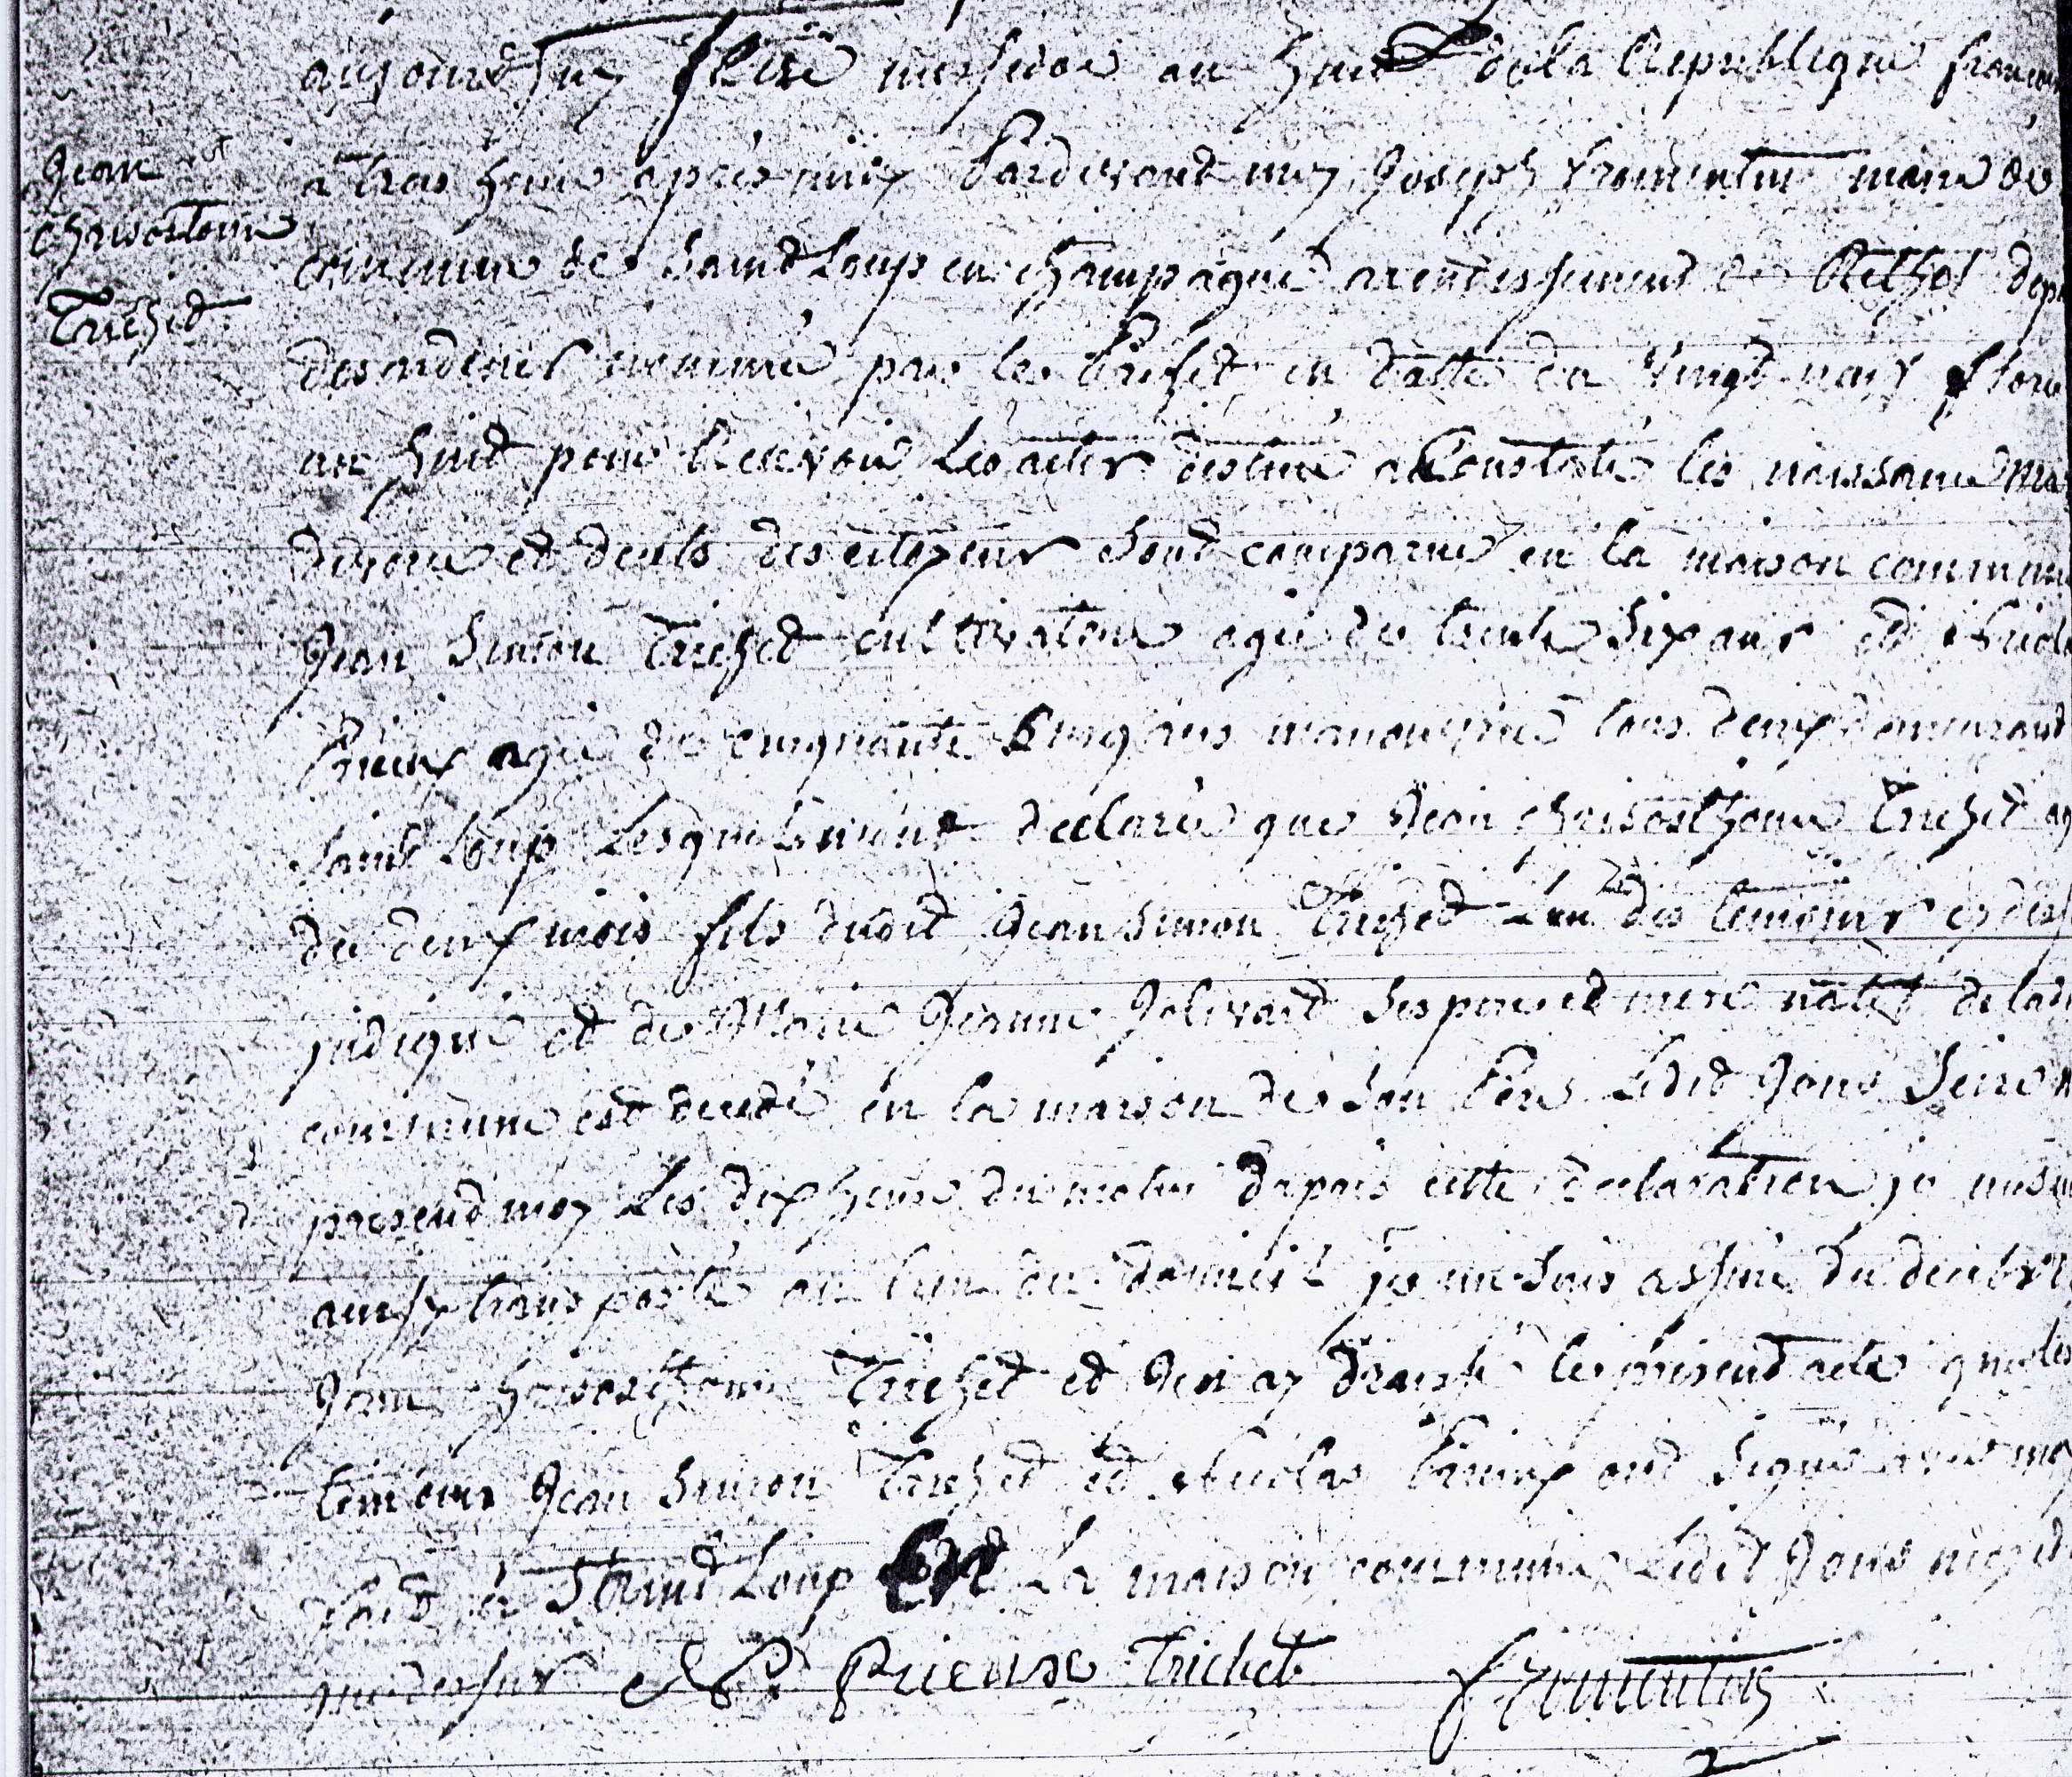 aujourd'huy messidor an huit de la Republique
Jean
a trois heure apres midy Pardevant moy Joseph Fromentin maire de
chrisostome
commune de Saint Loup en champagne arendissement de Rethel
Trichet
des ardenes nommé par le Prefet en datte du vingt
an huit pour Recevoir Les actes destiné a Constaté les naissance
divorce et decets des citoyens sont comparue en la maison
Jean Simon Trichet cultivateur agé de trente Six ans et
Prieux agé de cinquante Cinq ans manouvrié tous deux
Saint Loup Lesquels mont declaré que Jean chrisosthome Trichet
de deux mois fils dudit Jean Simon Trichet L'un des temoins
jndiqué et de Marie Jeanne Jolivart Ses pere et mere natif de
commune est decedé en la maison de Son Pere Ledit Jour
present moy Les dix heure du matin depais cette declaration je
ausy transporté au lieu du domicil je me suis assuré du decet
Jean chrisosthome Trichet et J'en ay drausé le present acte que les
temoins Jean Simon Trichet et Nicolas Prieux ont Signé avec moy
fait a Saint Loup En La maison commune Ledit Jour
que dessus N P Prieuse Trichet Fromentin